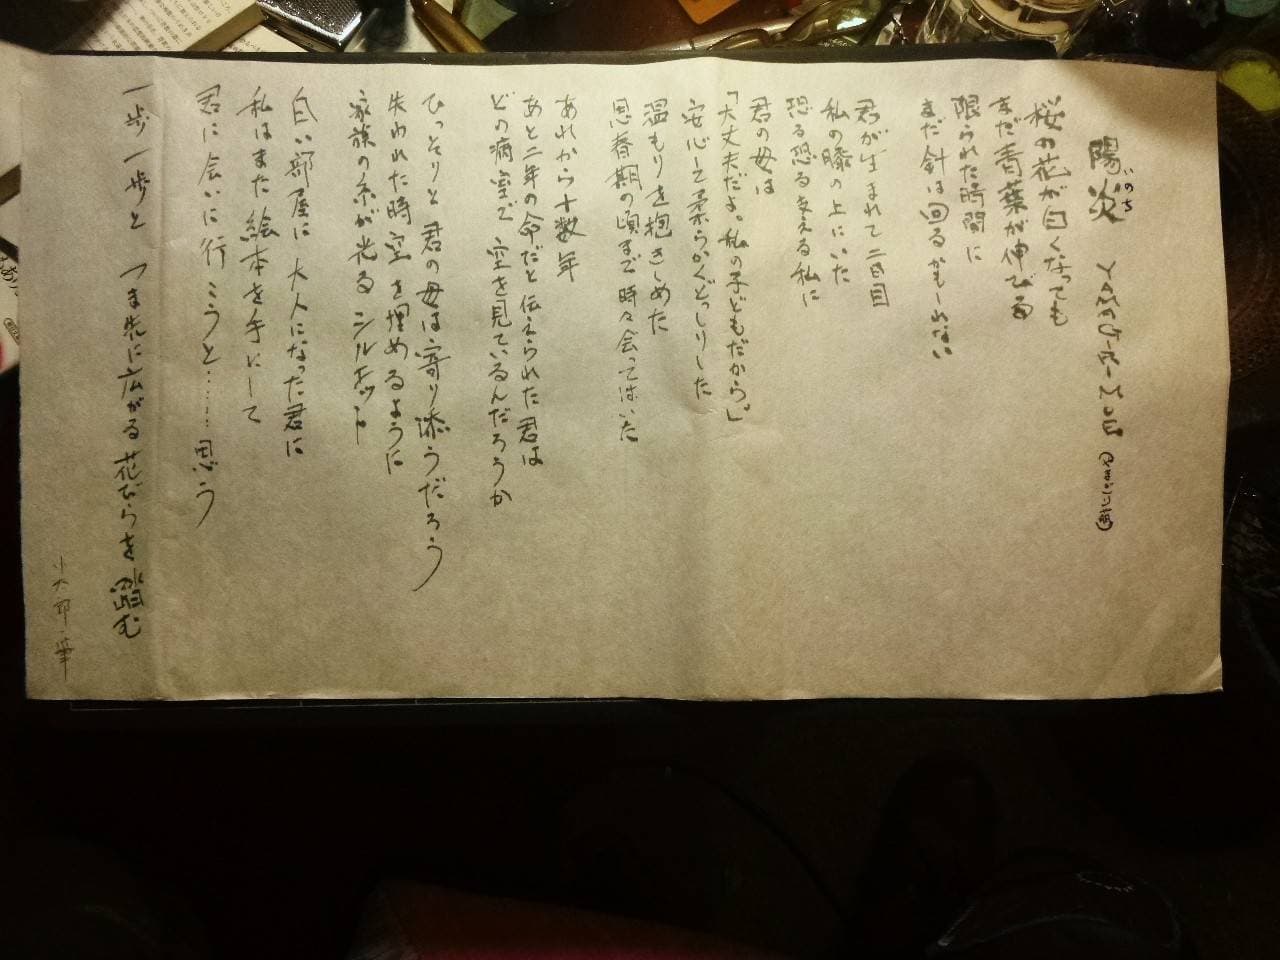 陽炎
いのち
YAMAGiRi-MUE
桜の花が白くなっても
まだ青葉が伸びる
限られた時間に
まだ針は回るかもしれない
君が生まれて二日目
私の膝の上にいた
恐る恐る支える私に
君の母は
「大丈夫だよ。私の子どもだから」。
安心して柔らかくどっしりした
温もりを抱きしめた
思春期の頃まで時々会ってはいた
あれから十数年
あと二年の命だと伝えられた君は
どの病室で 空を見ているんだろうか
ひっそりと 君の母は寄り添うだろう
失われた時空を埋めるように
家族の糸が光る シルエット
白い部屋に 大人になった君に
私はまた絵本を手にして
君に会いに行こうと……思う
一歩一歩と つま先に広がる花びらを踏む